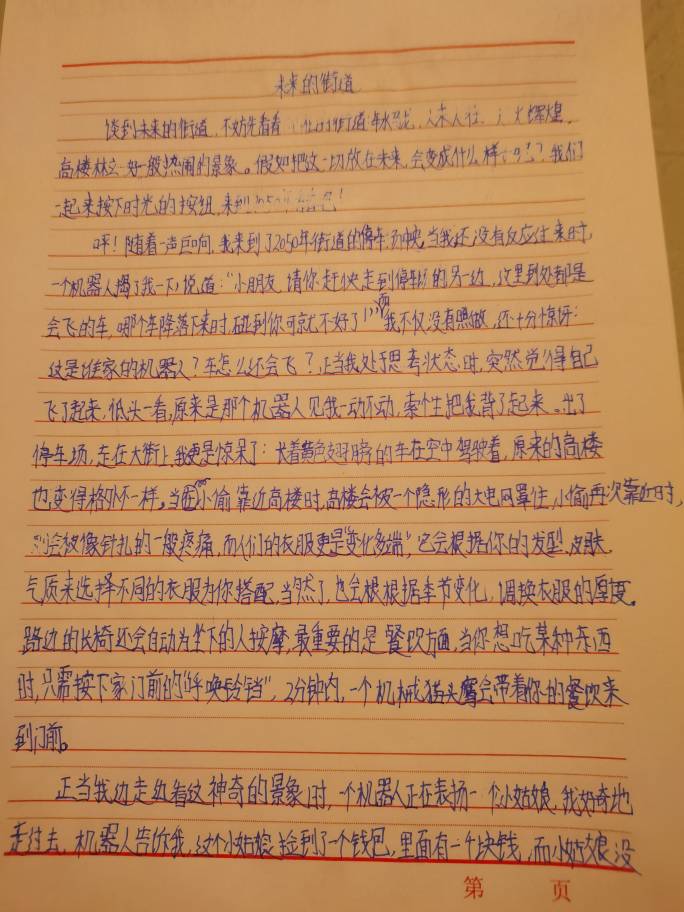 未来的街道
谈到未来的街道,不妨先看看 街道:车水马龙,人来人往,灯火辉煌,
高楼林立一好一般热闹的景象。假如把这一切放在未来,会变成什么样 ?我们
一起来按下时光的按钮,来到2050年 !
呼!随着一声巨响,我来到了2050年街道的停车场中央,当我还没有反应过来时,
一个机器人撞了我一下,说道:“小朋友,请你赶快走到停车场的另一边,这里到处都是
会飞的车,哪个车降落下来时,碰到你可就不好了!”而我不仅没有照做,还十分惊讶:
这是谁家的机器人?车怎么还会飞?正当我处于思考状态时,突然觉得自己
飞了起来,低头一看,原来是那个机器人见我一动不动,索个生把我背了起来。出了
停车场,走在大街上,我更是惊呆了:长着黄色翅膀的车在空中驾驶着,原来的高楼
也变得格外不一样。当 小偷靠近高楼时,高楼会被一个隐形的大电网罩住,小偷再次靠近时,
则会被像针扎的一般疼痛,而人们的衣服更是“变化多端”,它会根据你的发型、皮肤、
气质来选择不同的衣服为你搭配,当然了,也会根根据季节变化,调换衣服的厚度。
路边的长椅还会自动为坐下的人按摩,最重要的是餐饮方面,当你想吃某种东西
时,只需按下家门前的“呼唤铃铛”,2分钟内,一个机械猫头鹰会带着你的餐饮来
到门前。
正当我边走边看这神奇的景象时,一个机器人正在表扬一个小姑娘,我好奇地
走过去,机器人告诉我,这个小姑娘捡到了一个钱包,里面有一千块钱,而小姑娘没
第 页